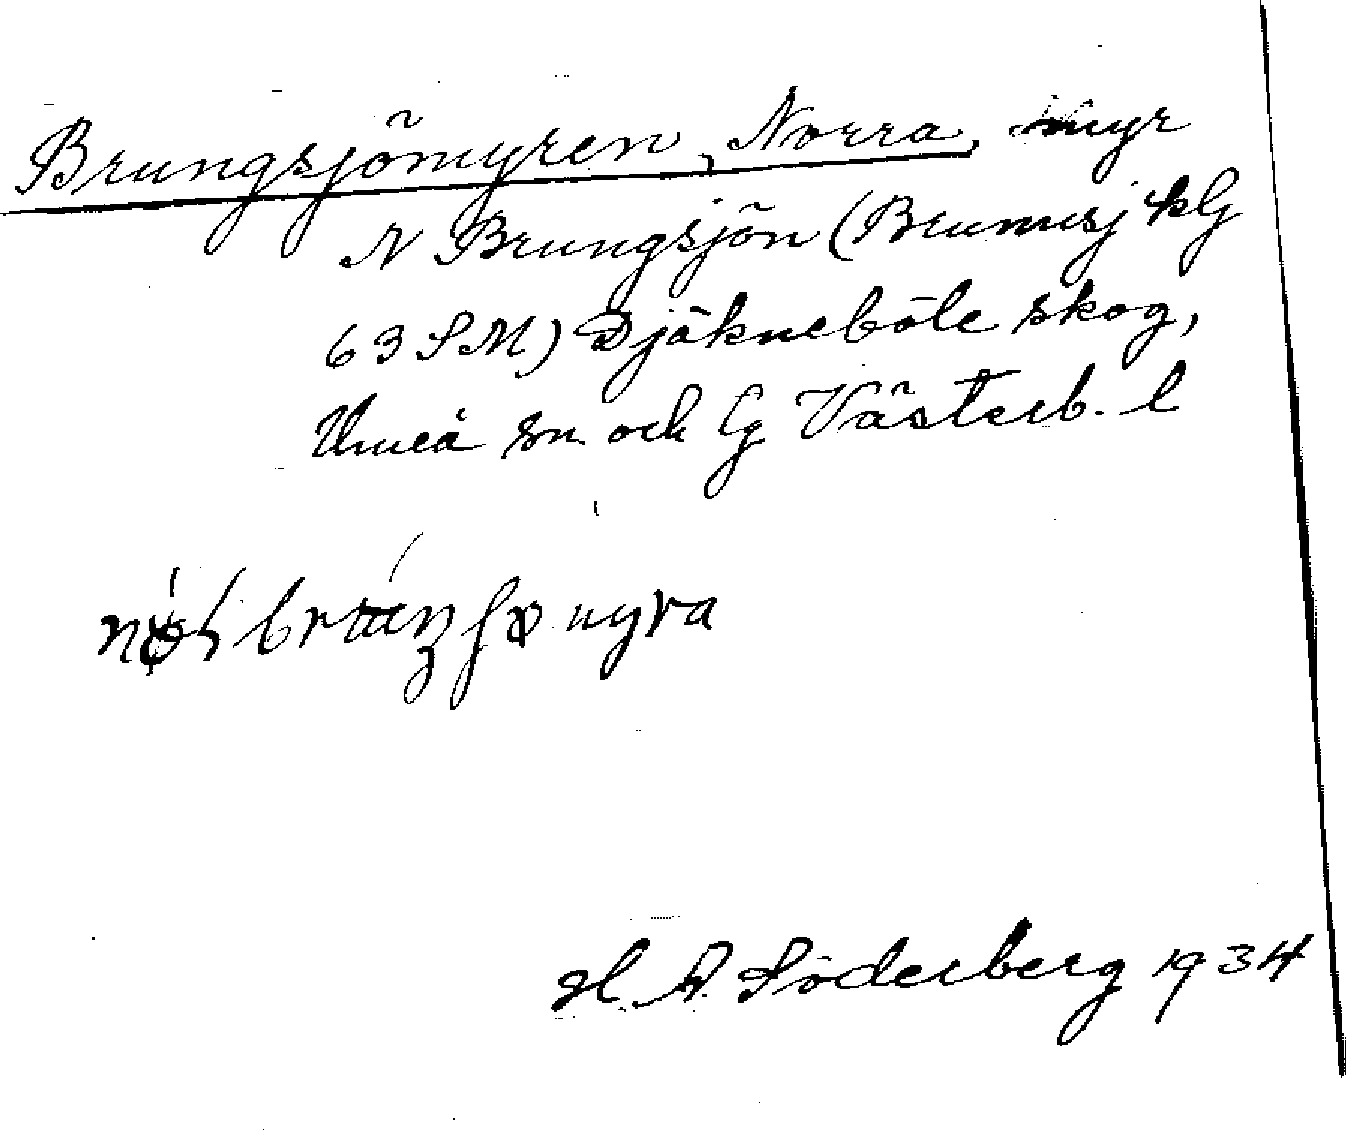 Brungsjömyren, Norra, myr
N Brungsjön (Brumsj kG
63 SM) Djäkneböle skog,
Umeå sn och lg Västerb. l
H. A. Söderberg 1934